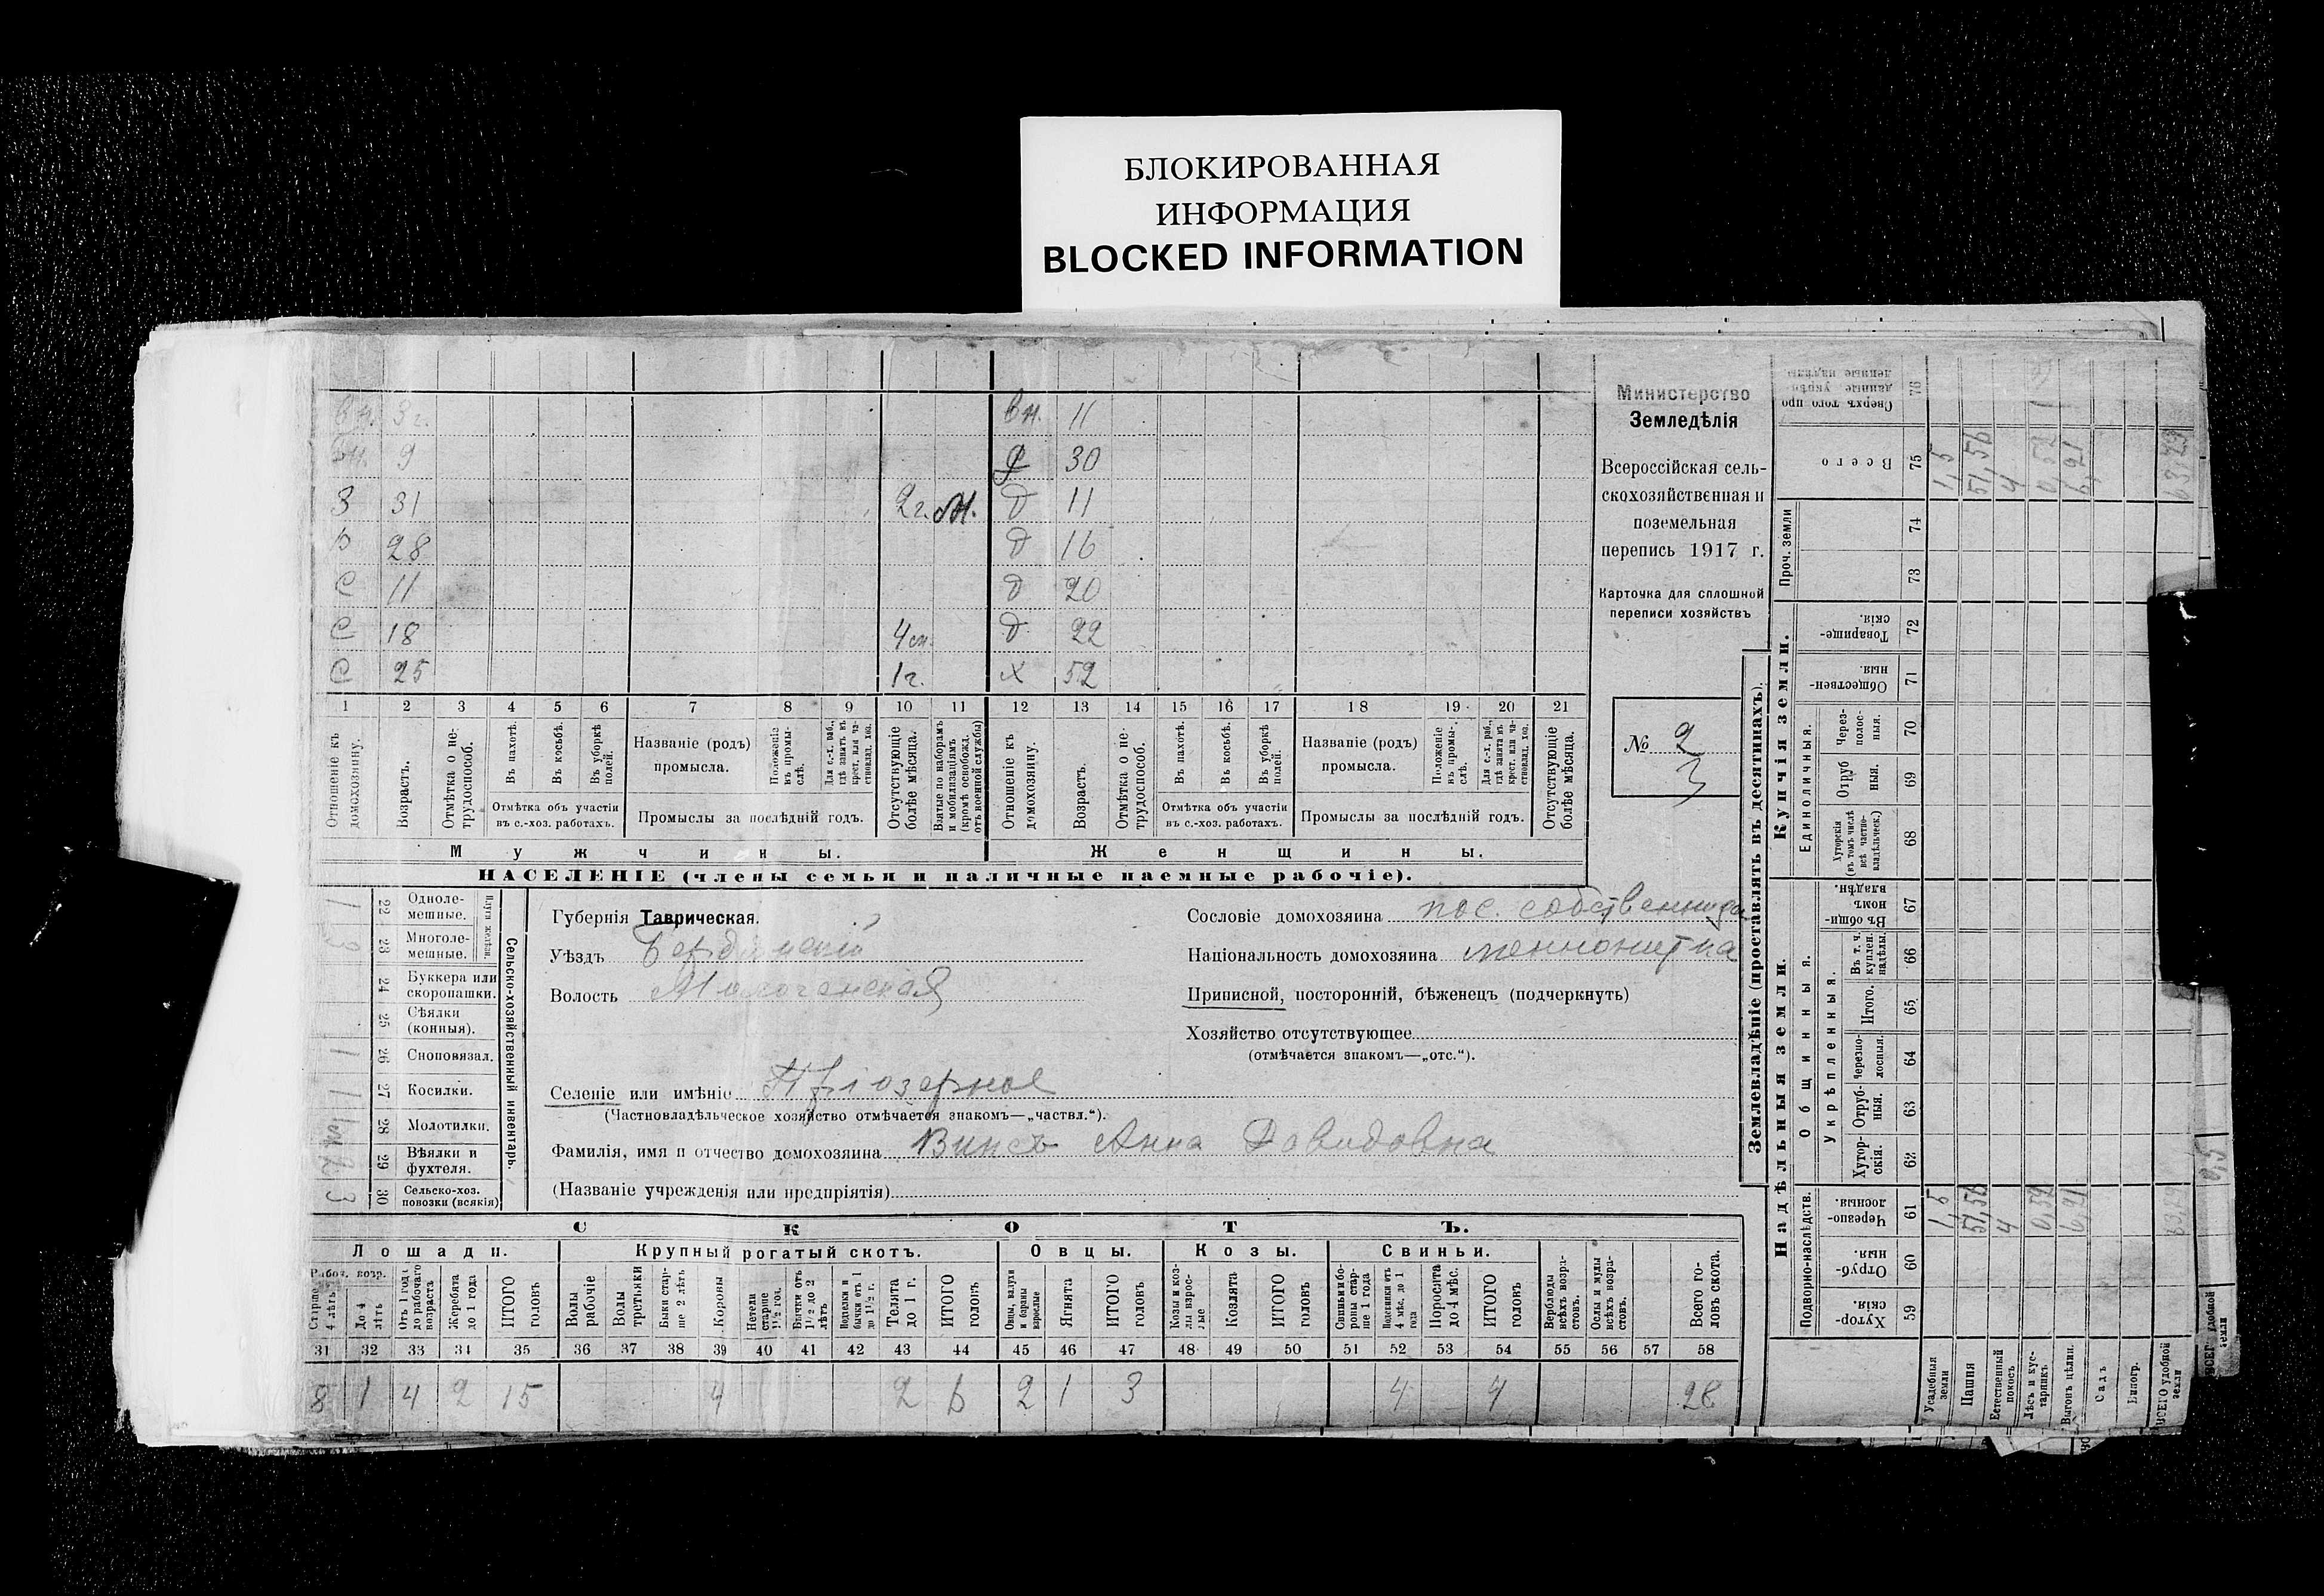 БЛОКИРОВАННАЯ
ИНФОРМАЦИЯ
BLOCKED INFORMATION
вн. 3 г. вн. 11
вн. 9 30
З 31 2 г. М. д 11
28 д 16
С 11 д 20
С 18 4 м. д 22
С 25 1 г. х 52
1 2 3 4 5 6 7 8 9 10 11 12 13 14 15 16 17 18 19 20 21
Отношеніе къ домохозяину.
Возрастъ.
Отмѣтка о не-трудоспособ.
Въ пахотѣ.
Въ косьбѣ.
Въ уборкѣ полей.
Отмѣтка объ участіи
въ с.-хоз. работахъ.
Названіе (родъ)
промысла.
Положеніе въ промы-слѣ.
Для с.-х. раб., гдѣ занятъ въ крест. или ча-стновлад. хоз.
Промыслы за послѣдній годъ.
Отсутствующіе болѣе мѣсяца.
Взятые по наборамъ и мобилизаціямъ (кромѣ освобожд. отъ военной службы)
Отношеніе къ домохозяину.
Возрастъ.
Отмѣтка о не-трудоспособ.
Въ пахотѣ.
Въ косьбѣ.
Въ уборкѣ полей.
Отмѣтка объ участіи
въ с.-хоз. работахъ.
Названіе (родъ)
промысла.
Положеніе въ промы-слѣ.
Для с.-х. раб., гдѣ занята въ крест. или ча-стновлад. хоз.
Промыслы за послѣдній годъ.
Отсутствующіе болѣе мѣсяца.
Мужчины. Женщины.
НАСЕЛЕНІЕ (члены семьи и наличные наемные рабочіе).
Министерство
Земледѣлія
Всероссійская сель-
скохозяйственная и
поземельная
перепись 1917 г.
Карточка для сплошной
переписи хозяйствъ
№ 2
3
Плуги желѣзн.
Сельско-хозяйственный инвентарь.
1 22 Одноле-мешные.
3 23 Многоле-мешные.
24 Буккера или скоропашки.
25 Сѣялки (конныя).
1 26 Сноповязал.
1 27 Косилки.
28 Молотилки.
2 29 Вѣялки и фухтеля.
3 30 Сельско-хоз. повозки (всякія)
Губернія Таврическая.
Уѣздъ Бердянскій
Волость Молочанская
Селеніе или имѣніе Пріозерное
(Частновладѣльческое хозяйство отмѣчается знакомъ—„частвл.“).
Фамилія, имя и отчество домохозяина Винсъ Анна Давидовна
(Названіе учрежденія или предпріятія)
Сословіе домохозяина пос. собственница
Національность домохозяина меннонитка
Приписной, посторонній, бѣженецъ (подчеркнуть)
Хозяйство отсутствующее
(отмѣчается знакомъ—„отс.“).
СКОТЪ.
Лошади. Крупный рогатый скотъ. Овцы. Козы. Свиньи.
Рабоч. возр.
Старше 4 лѣтъ
До 4 лѣтъ
Отъ 1 года до рабочаго возраста
Жеребята до 1 года
ИТОГО головъ
Волы рабочіе
Волы третьяки
Быки стар-ше 2 лѣтъ
Коровы
Нетели старше 1½ год.
Бычки отъ 1½ до 2 лѣтъ
Подтелки и бычки отъ 1 до 1½ г.
Телята до 1 г.
ИТОГО головъ
Овцы, валухи и бараны взрослые
Ягнята
ИТОГО головъ
Козы и коз-лы взрос-лые
Козлята
ИТОГО головъ
Свиньи и бо-ровы стар-ше 1 года
Подсвинки отъ 4 мѣс. до 1 года
Поросята до 4 мѣс.
ИТОГО головъ
Верблюды всѣхъ возра-стовъ.
Ослы и мулы всѣхъ возра-стовъ.
Всего го-ловъ скота.
31 32 33 34 35 36 37 38 39 40 41 42 43 44 45 46 47 48 49 50 51 52 53 54 55 56 57 58
8 1 4 2 15 4 2 6 2 1 3 4 4 28
Землевладѣніе (проставлять въ десятинахъ).
Надѣльныя земли. Купчія земли.
Подворно-наслѣдств. Общинныя. Единоличныя. Проч. земли
Укрѣпленныя.
Хутор-скія. 59
Отруб-ныя. 60
Черезпо-лосныя. 61
Хутор-скія. 62
Отруб-ныя. 63
Черезпо-лосныя. 64
Итого. 65
Въ т. ч. куплен. надѣлы. 66
Въ общи-номъ владѣн. 67
Хуторскія (въ томъ числѣ всѣ частно-владѣльческ.) 68
Отруб-ныя. 69
Через-полос-ныя. 70
Обществен-ныя. 71
Товарище-скія. 72
73
74
Всего 75
76
Усадебная земля 1,5 1,5
Пашня 51,56 51,56
Естественный покосъ 4 4
Лѣсъ и кус-тарникъ
Выгонъ цѣлин. 6,21 6,21
Садъ
Виногр.
ВСЕГО удобной земли